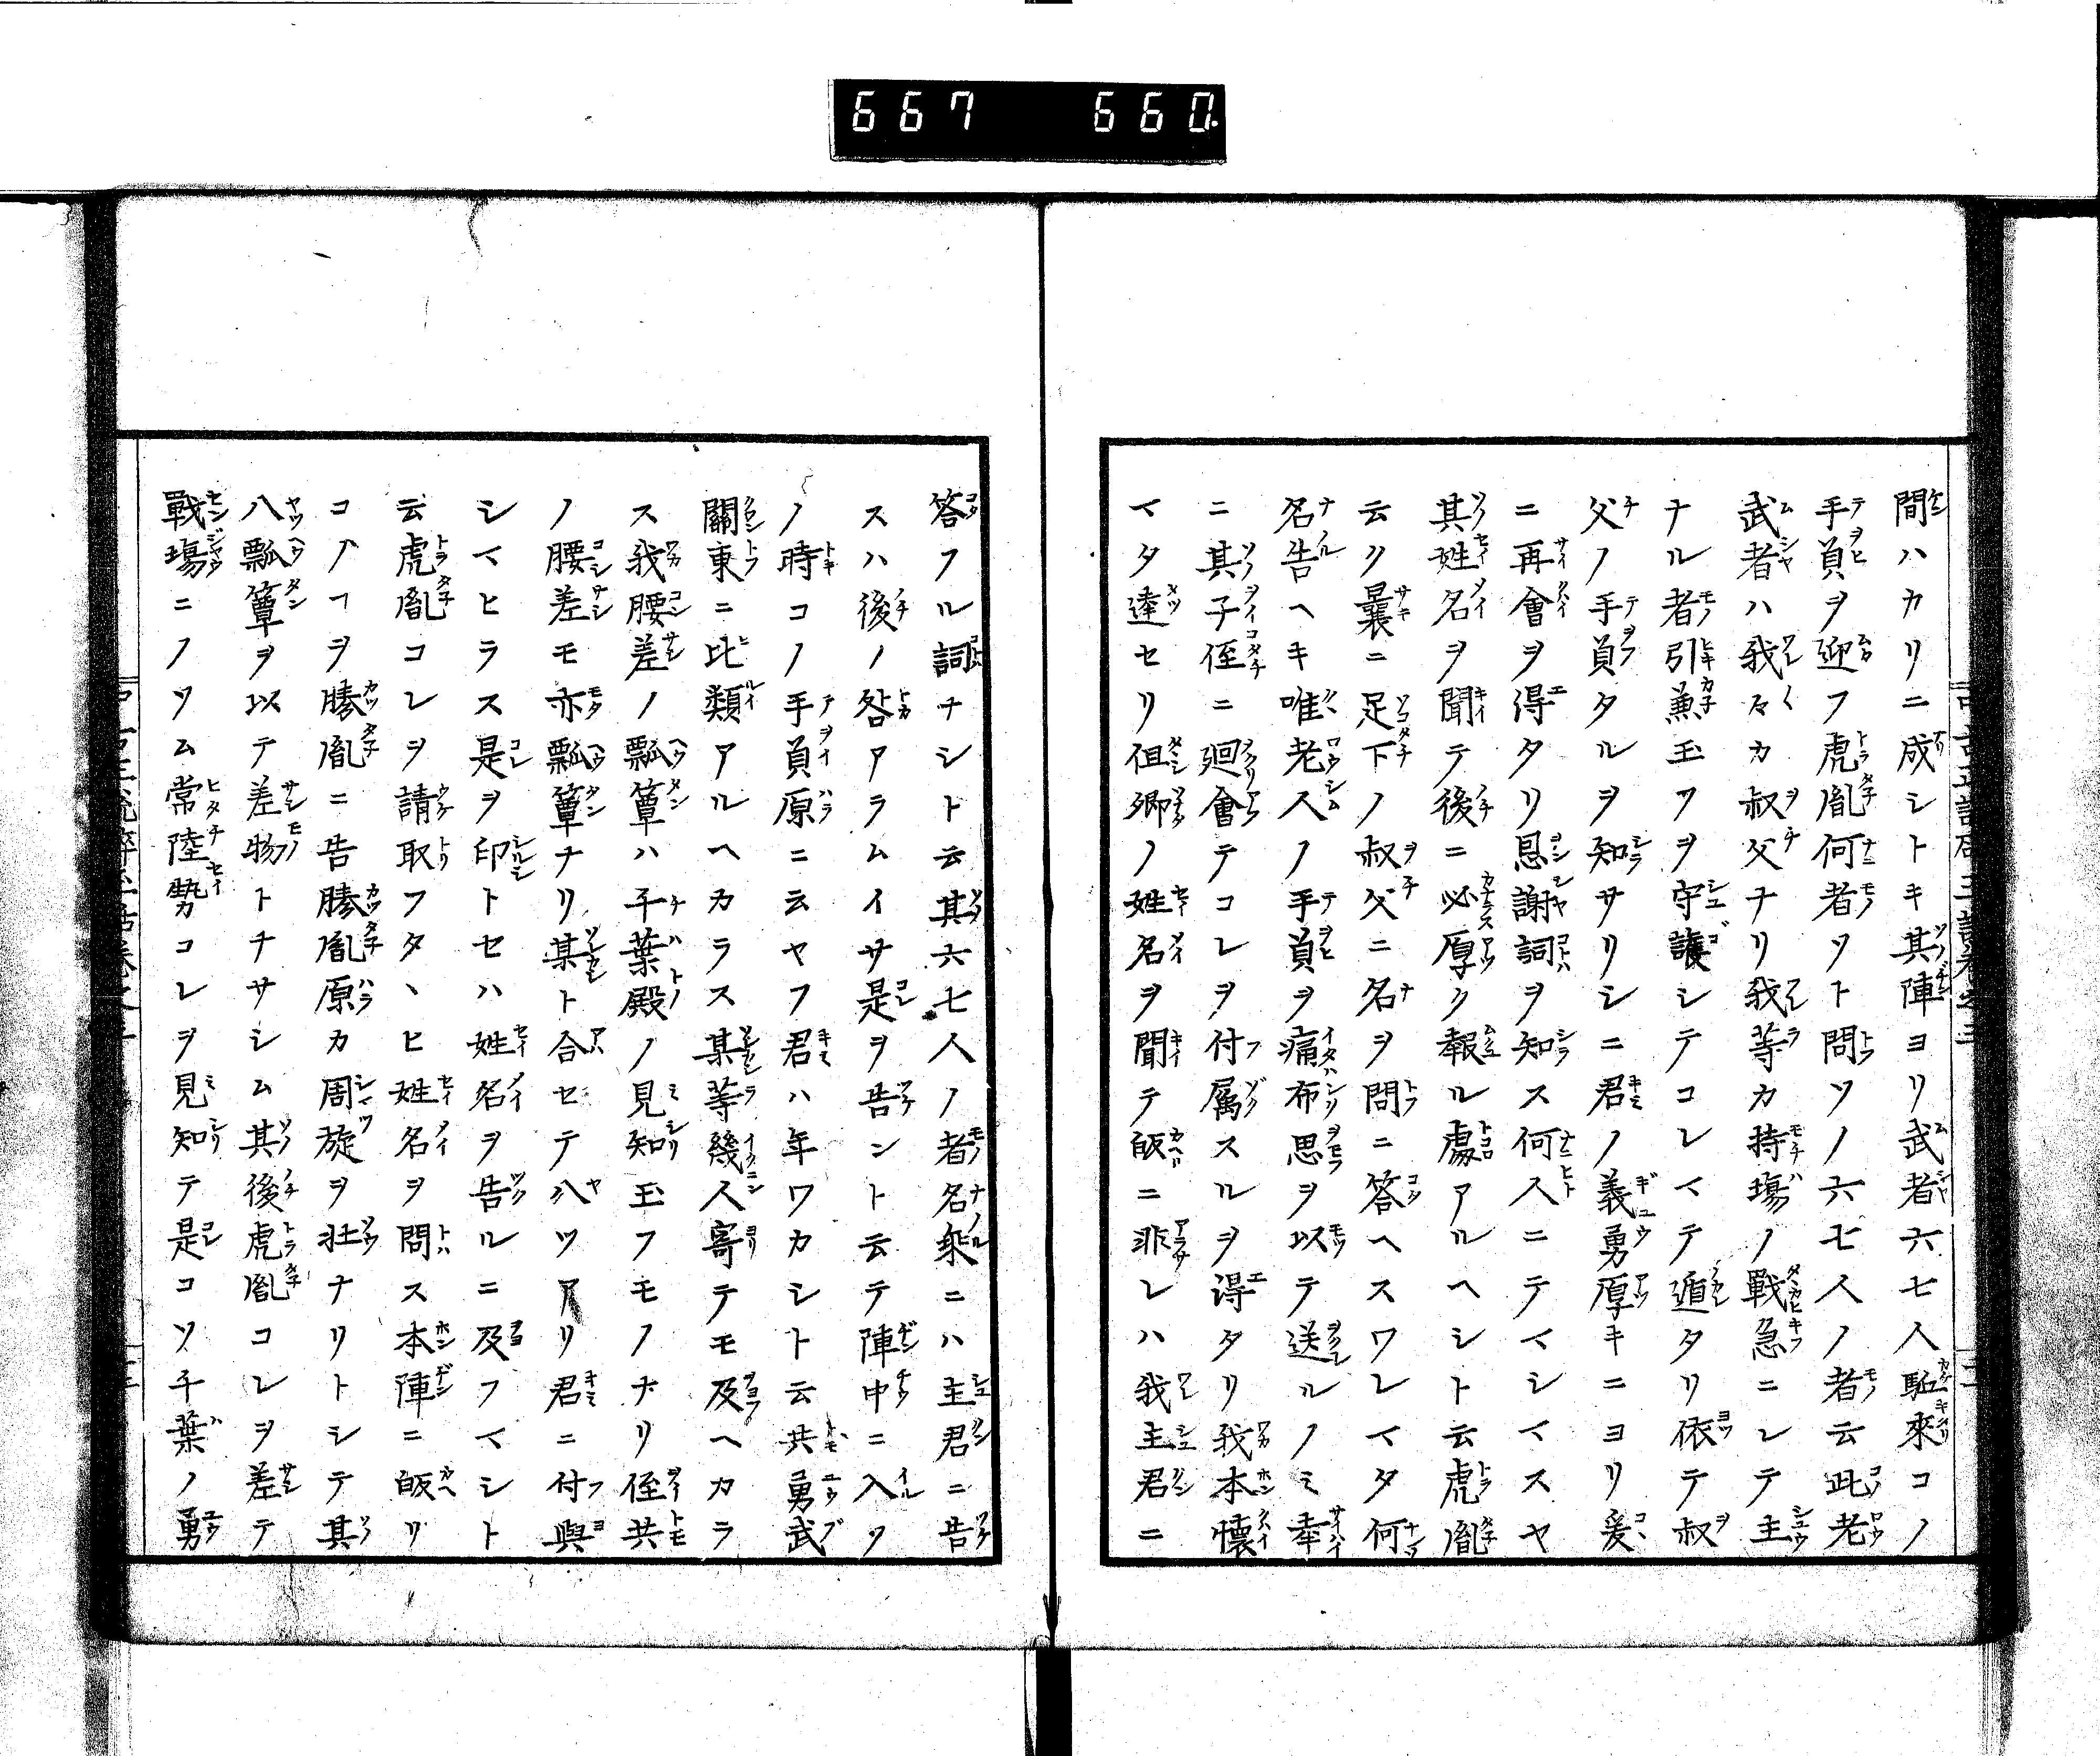 667 660
間ハカリニ成シトキ其陣ヨリ武者六七人駈來コノ
手負ヲ迎フ虎胤何者ソト問ソノ六七人ノ者云此老
武者ハ我々カ叔父ナリ我等カ持場ノ戰急ニシテ主
ナル者引兼玉フヲ守護シテコレマテ遁タリ依テ叔
父ノ手負タルヲ知サリシニ君ノ義勇厚キニヨリ爰
ニ再會ヲ得タリ恩謝詞ヲ知ス何人ニテマシマスヤ
其姓名ヲ聞テ後ニ必厚ク報ル處アルヘシト云虎胤
云リ曩ニ足下ノ叔父ニ名ヲ問ニ答ヘスワレマタ何
名告ヘキ唯老人ノ手負ヲ痛布思ヲ以テ送ルノミ幸
ニ其子侄ニ廻會テコレヲ付屬スルヲ得タリ我本懷
マタ達セリ但卿ノ姓名ヲ聞テ皈ニ非レハ我主君ニ
答フル詞ナシト云其六七人ノ者名乘ニハ主君ニ告
スハ後ノ咎アラムイサ是ヲ告ント云テ陣中ニ入ツ
ノ時コノ手負原ニ云ヤフ君ハ年ワカシト云共勇武
關東ニ比類アルヘカラス某等幾人寄テモ及ヘカラ
ス我腰差ノ瓢簞ハ千葉殿ノ見知玉フモノナリ侄共
ノ腰差モ亦瓢簞ナリ某ト合セテ八ツアリ君ニ付與
シマヒラス是ヲ印トセハ姓名ヲ告ルニ及フマシト
云虎胤コレヲ請取フタヽヒ姓名ヲ問ス本陣ニ皈リ
コノヿヲ勝胤ニ告勝胤原カ周旋ヲ壯ナリトシテ其
八瓢簞ヲ以テ差物トナサシム其後虎胤コレヲ差テ
戰塲ニノソム常陸勢コレヲ見知テ是コソ千葉ノ勇